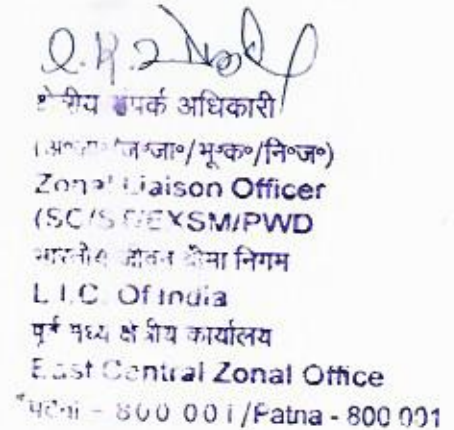 क्षेत्रीय संपर्क अधिकारी
/भू०क०/नि०ज०)
Zonal Liaison Officer
(SC/ST/EXSM/PWD
भारतीय जीवन बीमा निगम
L.I.C. Of India
पूर्व मध्य क्षेत्रीय कार्यालय
East Central Zonal Office
पटना - 800 001/Patna - 800 001